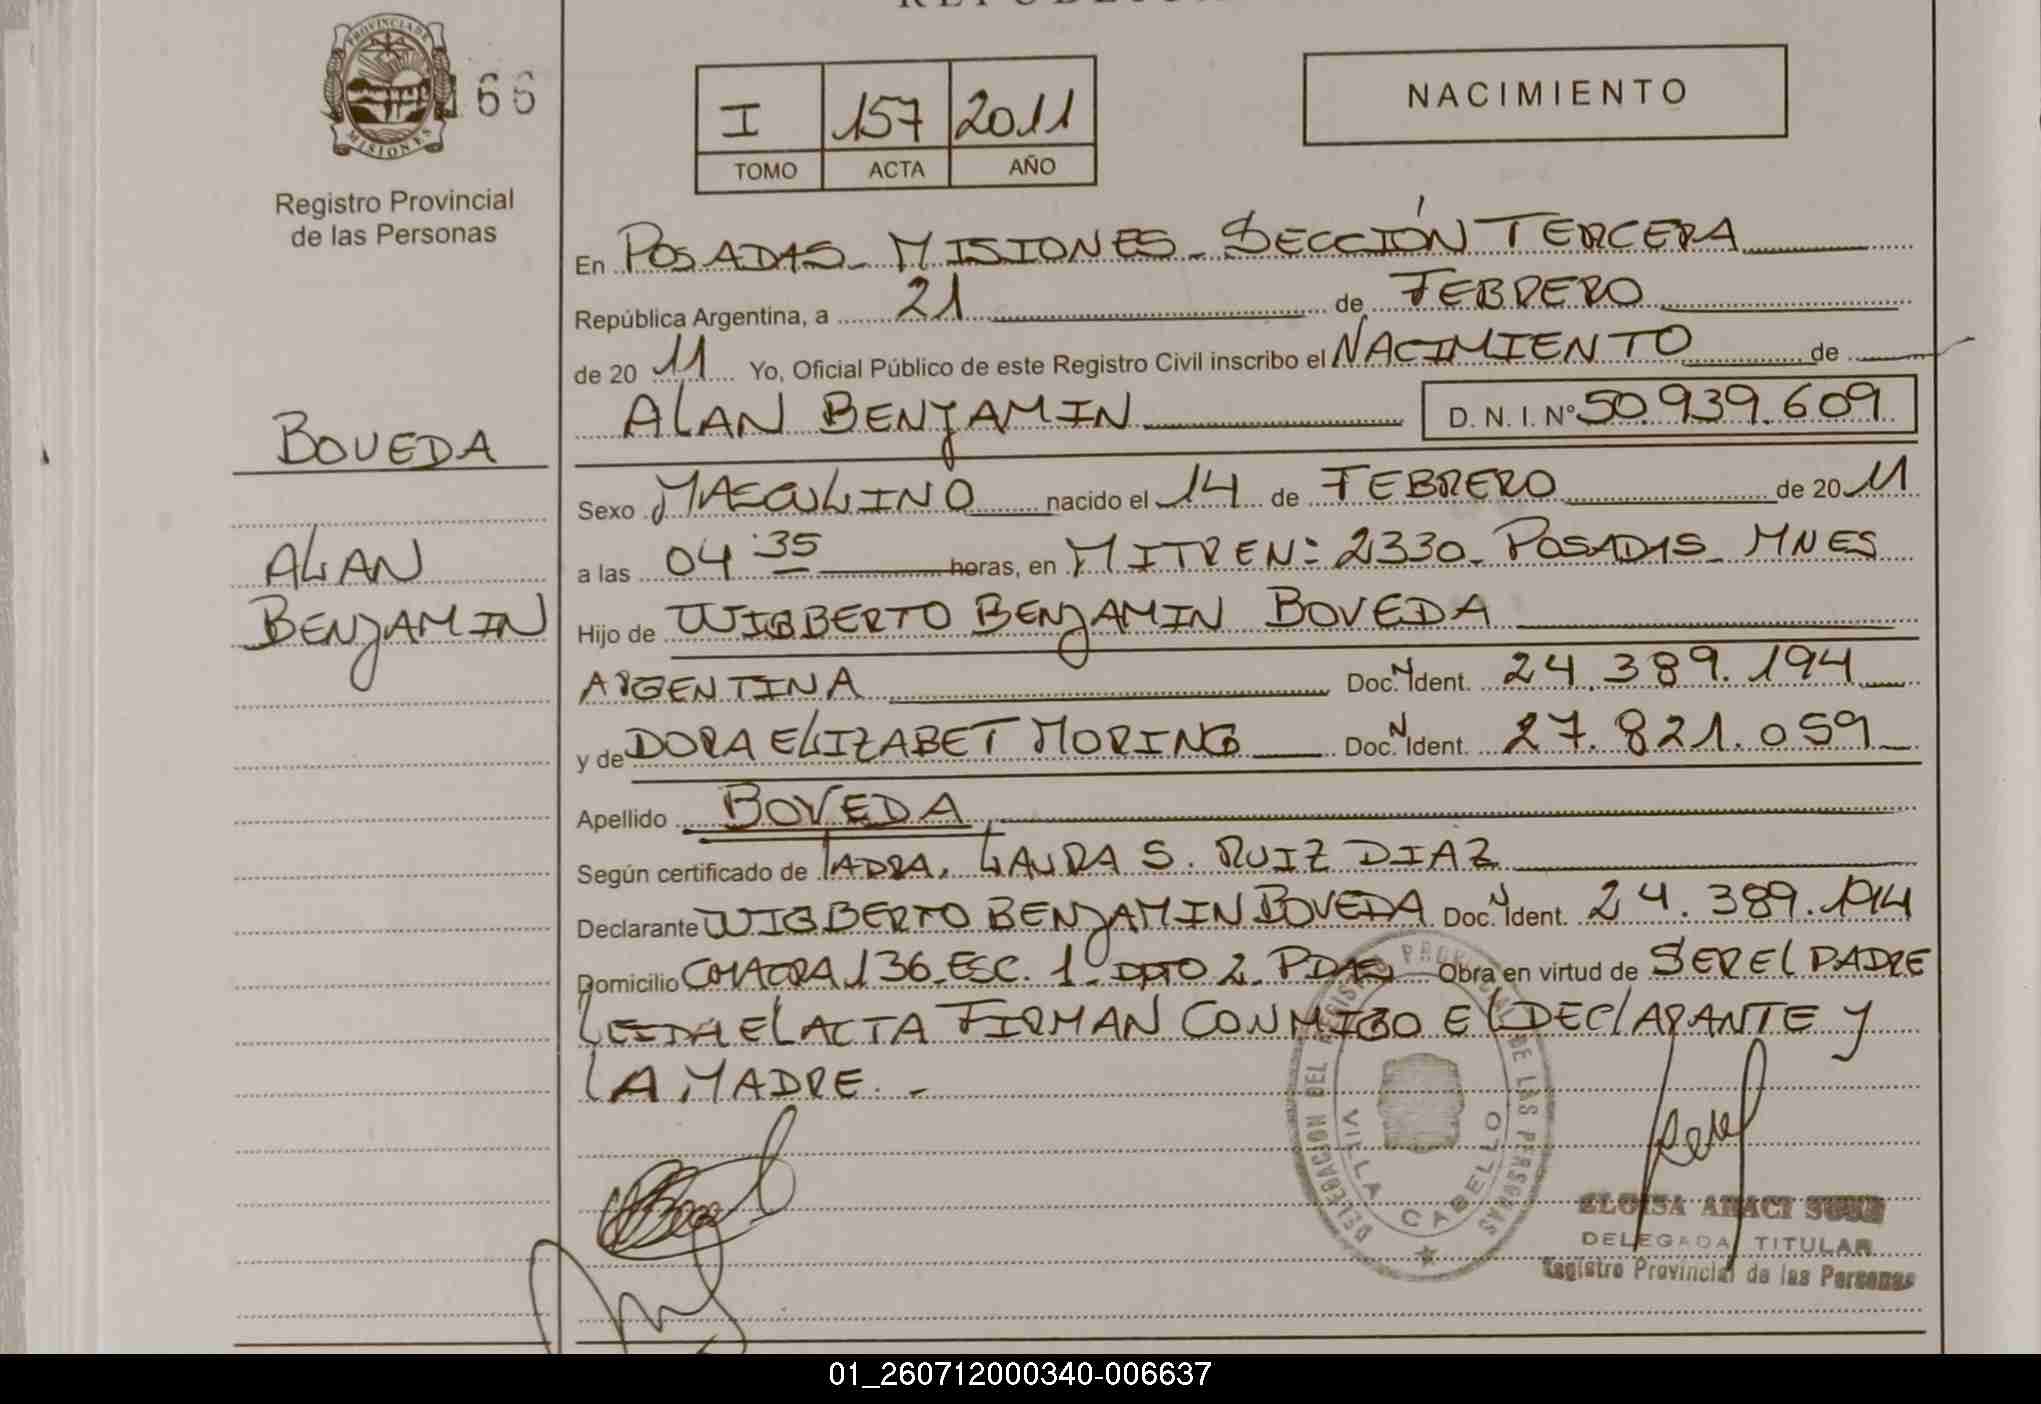 REPÚBLICA
PROVINCIA DE
MISIONES
166
Registro Provincial
de las Personas
I 157 2011
TOMO ACTA AÑO
NACIMIENTO
En POSADAS - MISIONES - SECCIÓN TERCERA
República Argentina, a 21 de FEBRERO
de 20 11 Yo, Oficial Público de este Registro Civil inscribo el NACIMIENTO de
ALAN BENJAMIN D. N. I. N° 50.939.609
BOVEDA
ALAN
BENJAMIN
Sexo MASCULINO nacido el 14 de FEBRERO de 20 11
a las 04:35 horas, en MITRE N: 2330 - POSADAS - MNES
Hijo de WIGBERTO BENJAMIN BOVEDA
ARGENTINA Doc. N Ident. 24.389.194
y de DORA ELIZABET MORING Doc. N Ident. 27.821.059
Apellido BOVEDA
Según certificado de LADRA. LAURA S. RUIZ DIAZ
Declarante WIGBERTO BENJAMIN BOVEDA Doc. N Ident. 24.389.194
Domicilio CHACRA 136 - ESC. 1 - DPTO 2 - PDAS Obra en virtud de SER EL PADRE
LEIDA EL ACTA FIRMAN CONMIGO EL DECLARANTE Y
LA MADRE. -
DELEGACION DEL REGISTRO PROVINCIAL DE LAS PERSONAS
VILLA CABELLO
ELOISA ARACI
DELEGADA TITULAR
Registro Provincial de las Personas
01_260712000340-006637